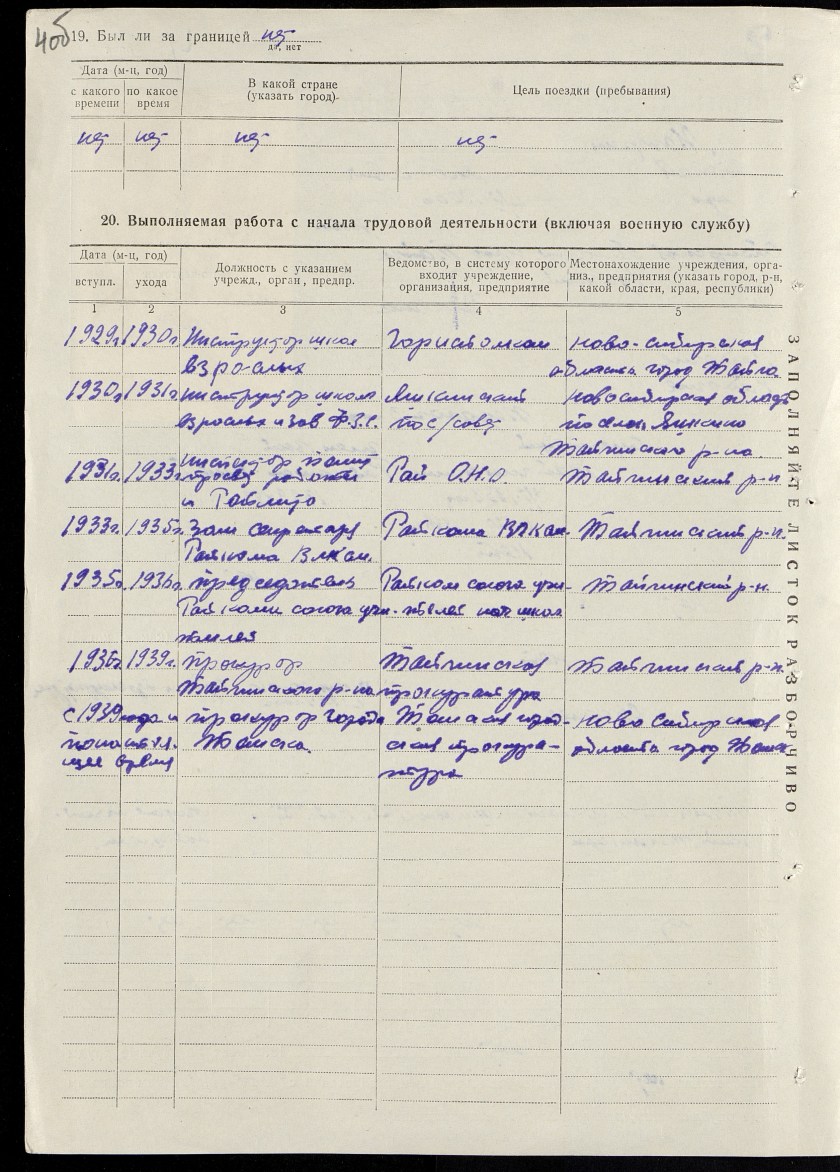 40б
19. Был ли за границей нет
да, нет
Дата (м-ц, год)
с какого времени
по какое время
В какой стране
(указать город)
Цель поездки (пребывания)
нет нет нет нет
20. Выполняемая работа с начала трудовой деятельности (включая военную службу)
Дата (м-ц, год)
вступл. ухода
Должность с указанием
учрежд., орган., предпр.
Ведомство, в систему которого
входит учреждение,
организация, предприятие
Местонахождение учреждения, орга-
низ., предприятия (указать город, р-н,
какой области, края, республики)
1 2 3 4 5
1929г 1930г Инструктор школ Горисполком Ново-сибирская
взрослых область город Тайга
1930г 1931г инструктор школ Яшкинский Новосибирская область
взрослых и зав Ф.З.С. пос/совет поселок Яшкино
Тайгинского р-на.
1931г. 1933г. инспектор Рай О.Н.О. Тайгинский р-н
работы
и
1933г. 1935г. Зам секретаря Райкома ВЛКСМ. Тайгинский р-н.
Райкома ВЛКСМ.
1935г. 1936г. председатель Райком союза учи- Тайгинский р-н.
Райкома союза учи- телей нач школ
телей
1936г 1939г. прокурор Тайгинская Тайгинский р-н.
Тайгинского р-на прокуратура
с 1939 года и прокурор города Томская город- Ново Сибирская
по настоя- Томска. ская прокура- область город Томск
щее время тура
ЗАПОЛНЯЙТЕ ЛИСТОК РАЗБОРЧИВО